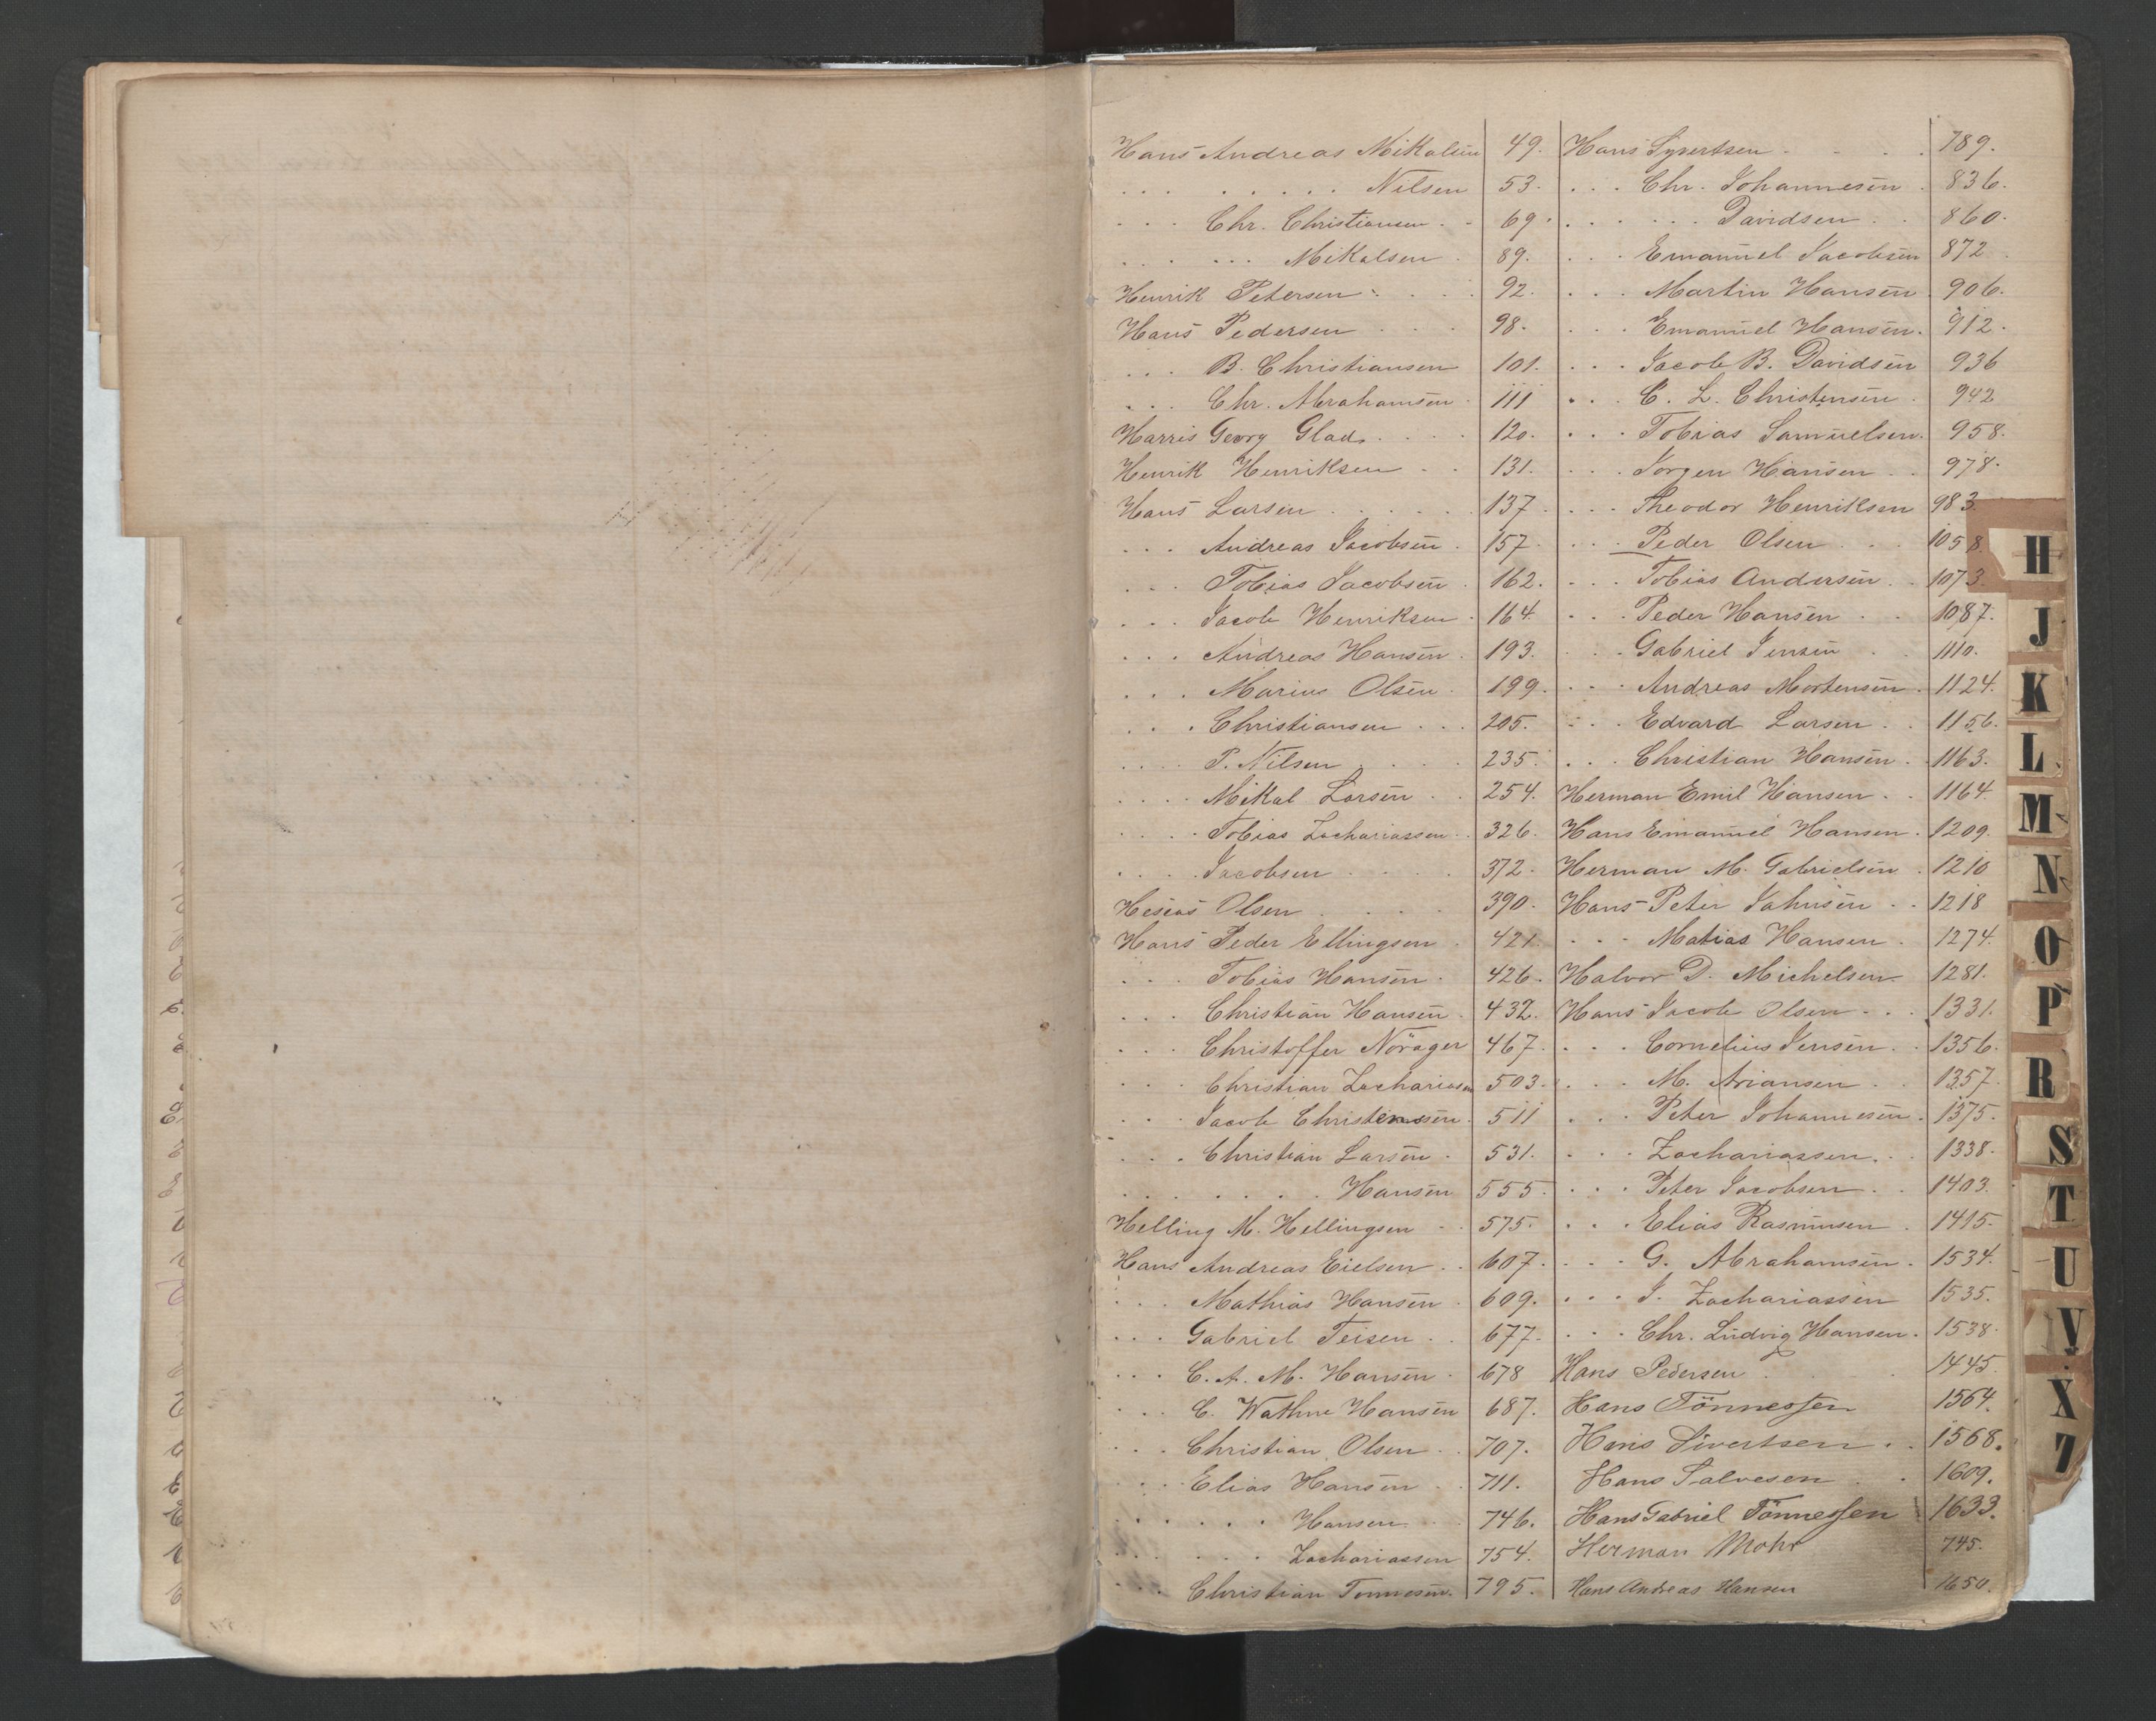 Hans Andreas Mikalsen 49.
. . . . . . . . Nilsen 53.
. . . Chr. Christiansen . . 69.
. . . . . . Mikalsen . 89.
Henrik Petersen . . . . 92.
Hans Pedersen . . . 98.
. . . B. Christiansen 101.
. . . Chr. Abrahamsen . 111
Harris Georg Glad . . . . 120.
Henrik Henriksen . . 131.
Hans Larsen . . . . . . 137
. . . Andreas Jacobsen . 157
. . . Tobias Jacobsen . 162.
. . . Jacob Henriksen . 164.
. . . Andreas Hansen . 193.
. . . Marius Olsen . 199.
. . . Christiansen . . . 205.
. . . . P. Nilsen . . . . 235.
. . . . Mikal Larsen . . 254.
. . . . Tobias Zachariassen . . 326.
. . . . Jacobsen . . . . 372.
Heseas Olsen . . . . 390.
Hans Peder Ellingsen . 421.
. . . Tobias Hansen . 426.
. . . Christian Hansen . 432.
. . . Christoffer Nöräger 467.
. . . Christian Zachariasen 503.
. . . Jacob Christensen . 511
. . . Christian Larsen . 531.
. . . . . . . Hansen 555.
Helling M. Hellingsen . . 575.
Hans Andreas Eielsen . . 607.
. . . Mathias Hansen . 609.
. . . Gabriel Teisen . . 677.
. . . C. A. M. Hansen . 678
. . . C. Wathne Hansen 687.
. . . Christian Olsen . . 707.
. . . Elias Hansen . . 711.
. . . . . . Hansen . . 746.
. . . . . . Zachariassen 754.
. . . Christian Tonnesen. 795.
Hans Syvertsen . . . . 789.
. . . Chr. Johannesen . 836.
. . . . . . Davidsen . . 860.
. . . Emanuel Jacobsen 872
. . . Martin Hansen . 906.
. . . Emanuel Hansen . 912.
. . . Jacob B. Davidsen 936
. . . C. L. Christensen . 942
. . . Tobias Samuelsen . 958.
. . . Jorgen Hansen . . 978.
. . . Theodor Henriksen 983.
. . . Peder Olsen . . . 1058.
. . . Tobias Andersen . . 1073.
. . . Peder Hansen . . 1087.
. . . Gabriel Jensen . . 1110.
. . . Andreas Mortensen . 1124.
. . . Edvard Larsen . . 1156.
. . . Christian Hansen . 1163.
Herman Emil Hansen . . 1164.
Hans Emanuel Hansen . 1209.
Herman M. Gabrielsen . 1210
Hans Peter Jahnsen . . 1218
. . . Matias Hansen . 1274.
Halvor D. Michelsen . 1281.
Hans Jacob Olsen . . . 1331.
. . . Cornelius Jensen . . 1356.
. . . M. Ariansen . . 1357.
. . . Peter Johannesen . 1375.
. . . Zachariassen . . 1338.
. . . Peter Jacobsen . . 1403.
. . . Elias Rasmusen . 1415.
. . . G. Abrahamsen . 1534.
. . . J. Zachariassen 1535.
. . . Chr. Ludvig Hansen . 1538.
Hans Pedersen . . . 1445.
Hans Tönnessen 1564.
Hans Sivertsen . . 1568.
Hans Salvesen . . 1609.
Hans Gabriel Tönnessen 1633.
Herman Mohr 745.
Hans Andreas Hansen 1650.
H
J
K
L
M
N
O
P
R
S
T
U
V
X
Z